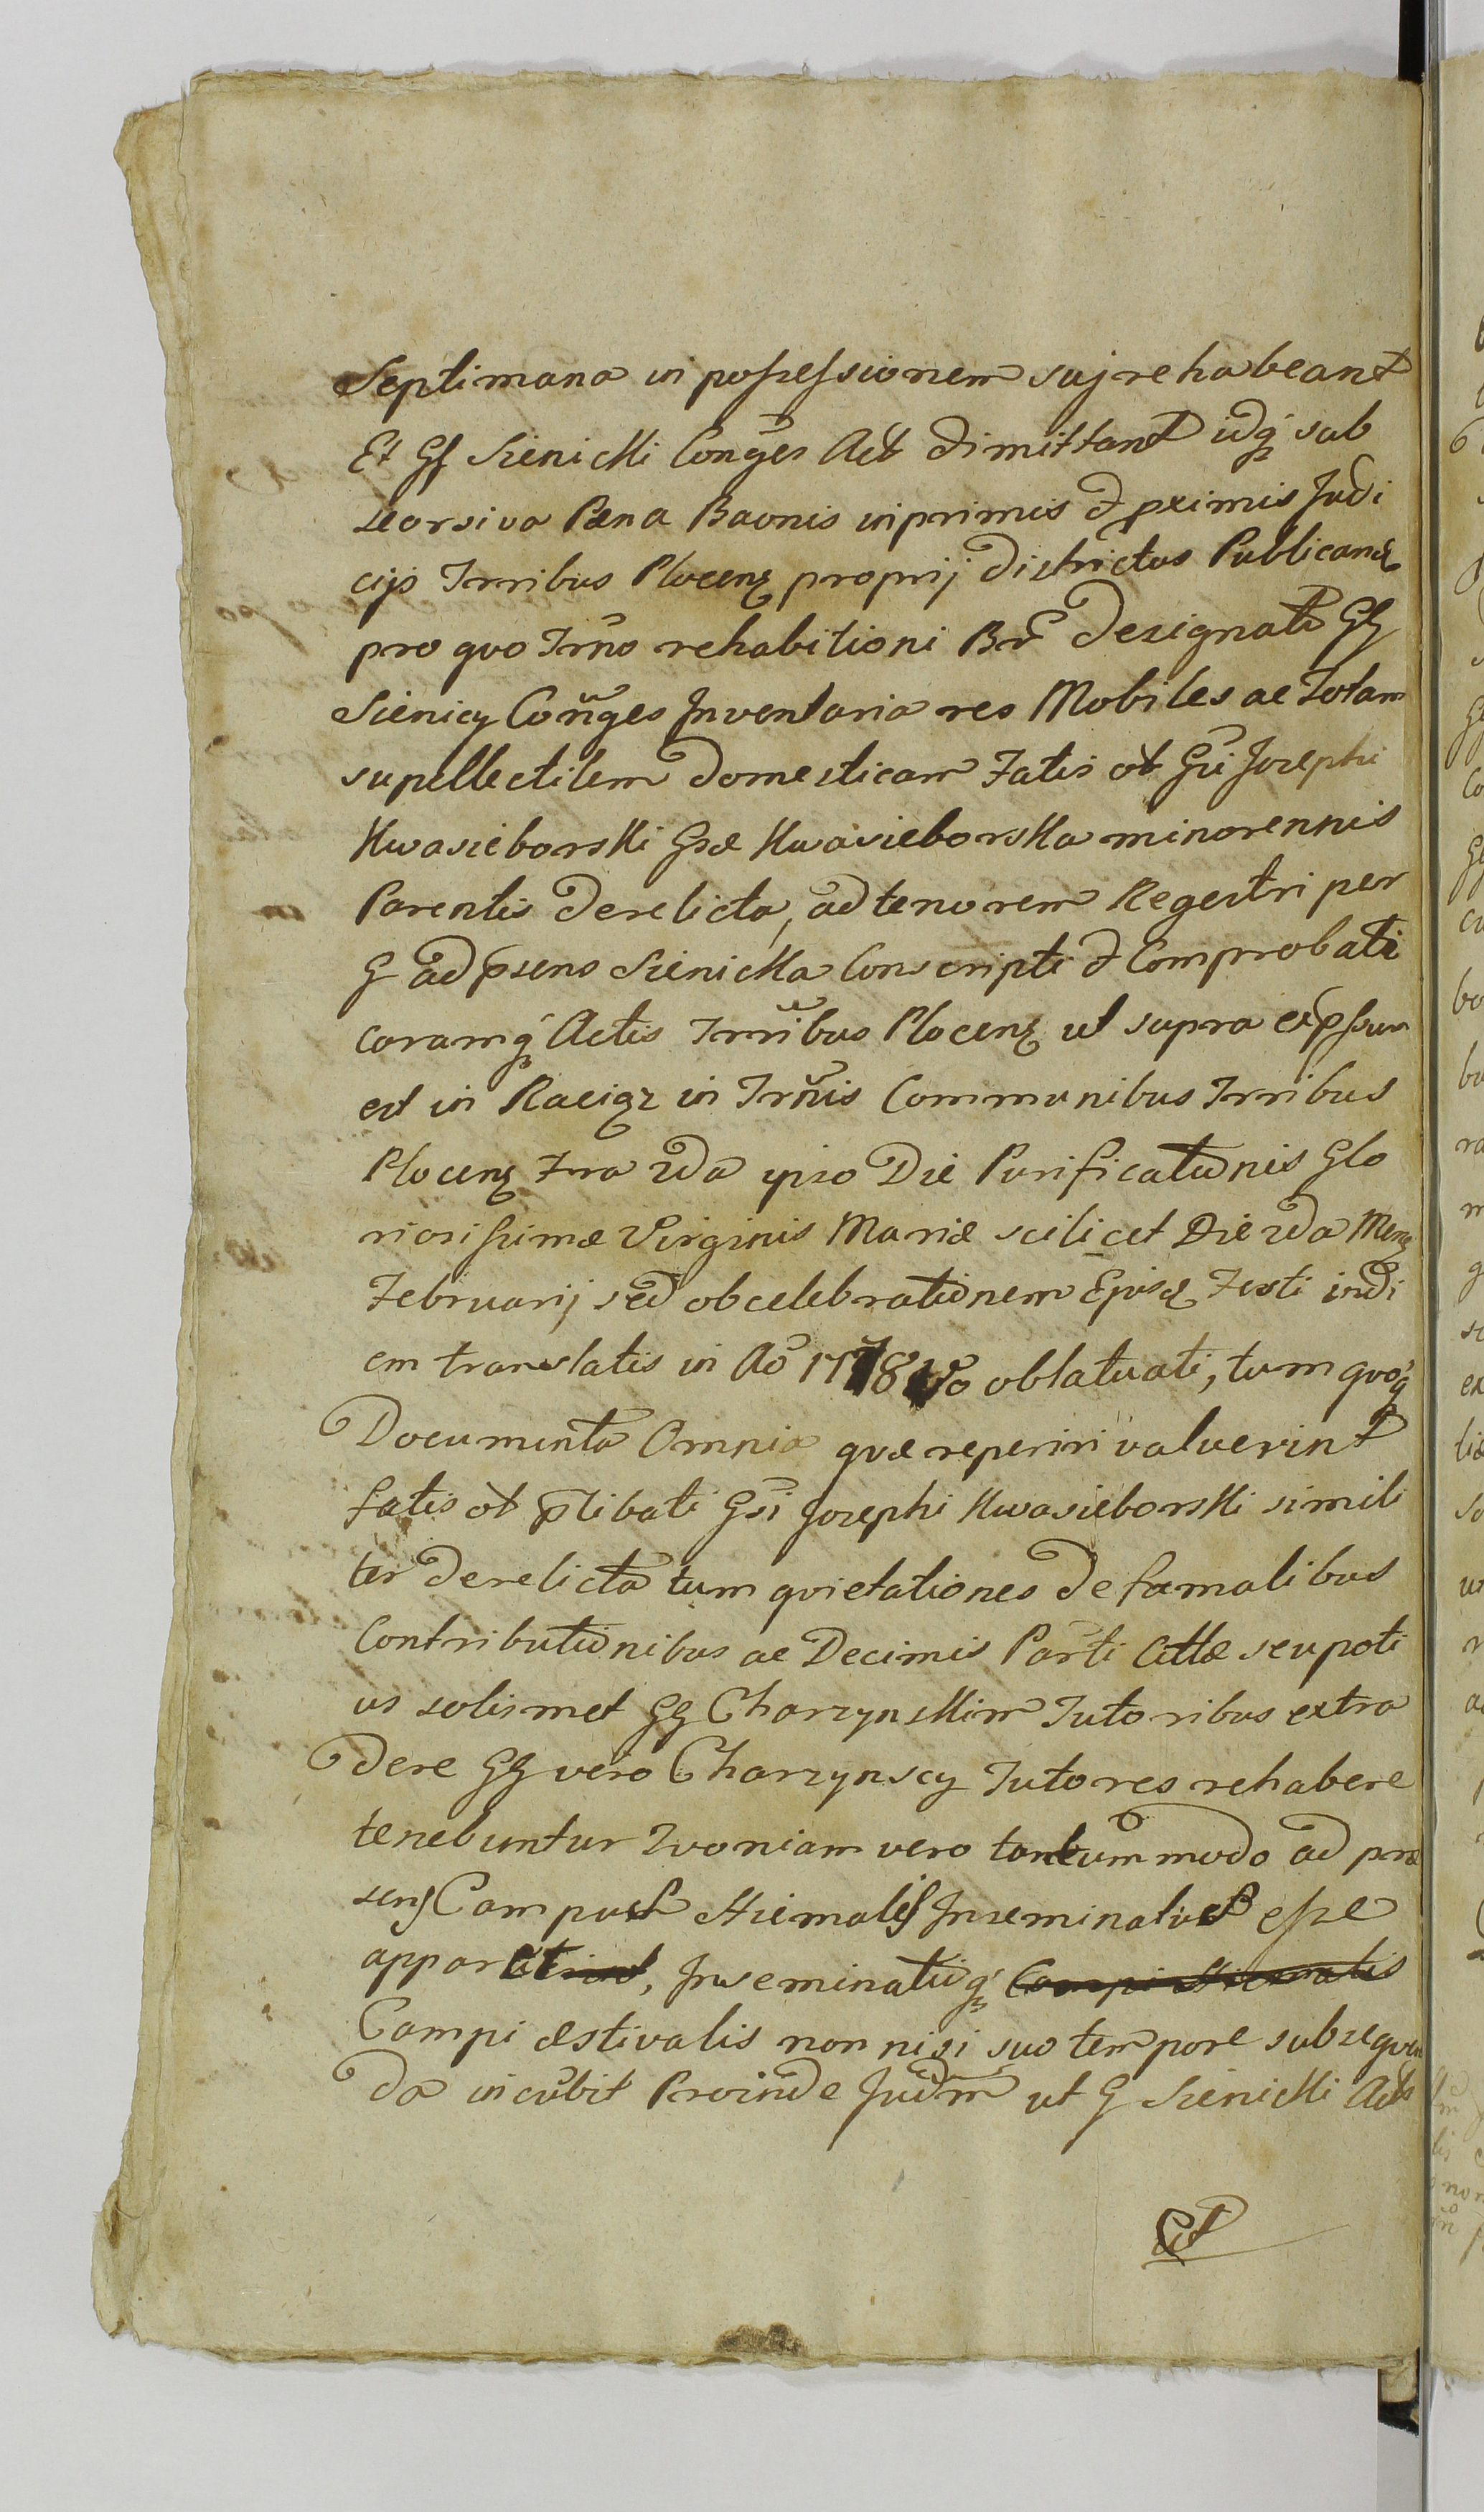 Septimana in possessionem suj rehabeant
Et GG Sienickii Conges Act dimittant idq sub
seorsiva Pæna Baonis inprimis & pximis Judi
cijs Trribus Plocens proprij Districtus Publicand
pro quo Trno rehabitioni Br Designato GG
Sienicy Conges Inventaria res Mobiles ac Totam
supellectilem Domesticam Fatis ot Gsi Josephi
Kwasieborski Gsæ Kwasieborska minorennis
Parentis Derelicta, ad tenorem Regestri per
G ad psens Sienicka Conscripti & Comprobati
coramq Actis Trribus Plocens ut supra expssum
est in Raciąz in Trnis Communibus Trribus
Plocens Fra 2da ipso Die Purificationis Glo
riosissimæ Virginis Mariæ scilicet Die 2da Mens
Februarij sed ob celebrationem Ejusd Festi in di
em translatis in Ao 1778vo oblatuati, tum quoq
Documenta Omnia quæ reperiri valuerint
fatis ot plibati Gsi Josephi Kwasieborski simili
ter Derelicta tum quietationes de famalibus
Contributionibus ac Decimis Parti Cittæ seu poti
us solismet GG Charzynskim Tutoribus extra
dere GG vero Charzynscy Tutores rehabere
tenebuntur Quoniam vero tantummodo ad præ
sens Campus Hiemalis Inseminatus esse
apparet, Inseminatioq Campi Hiemalis
Campi æstivalis non nisi suo tempore subsequen
da incubit Proinde Judm ut G Sienicki Act